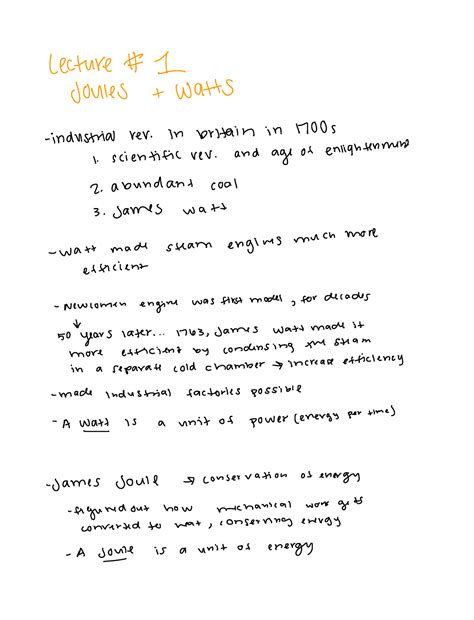 Lecture # 1
Joules + Watts
-industrial rev. in britain in 1700s
1. scientific rev. and age of enlightenment
2. abundant coal
3. James Watt
-Watt made steam engines much more
efficient
-Newcomen engine was first model, for decades
50 years later... 1763, James Watt made it
more efficient by condensing the steam
in a separate cold chamber → increase efficiency
-made industrial factories possible
-A Watt is a unit of power (energy per time)
-James Joule → conservation of energy
-figured out how mechanical work gets
converted to heat, conserving energy
-A Joule is a unit of energy